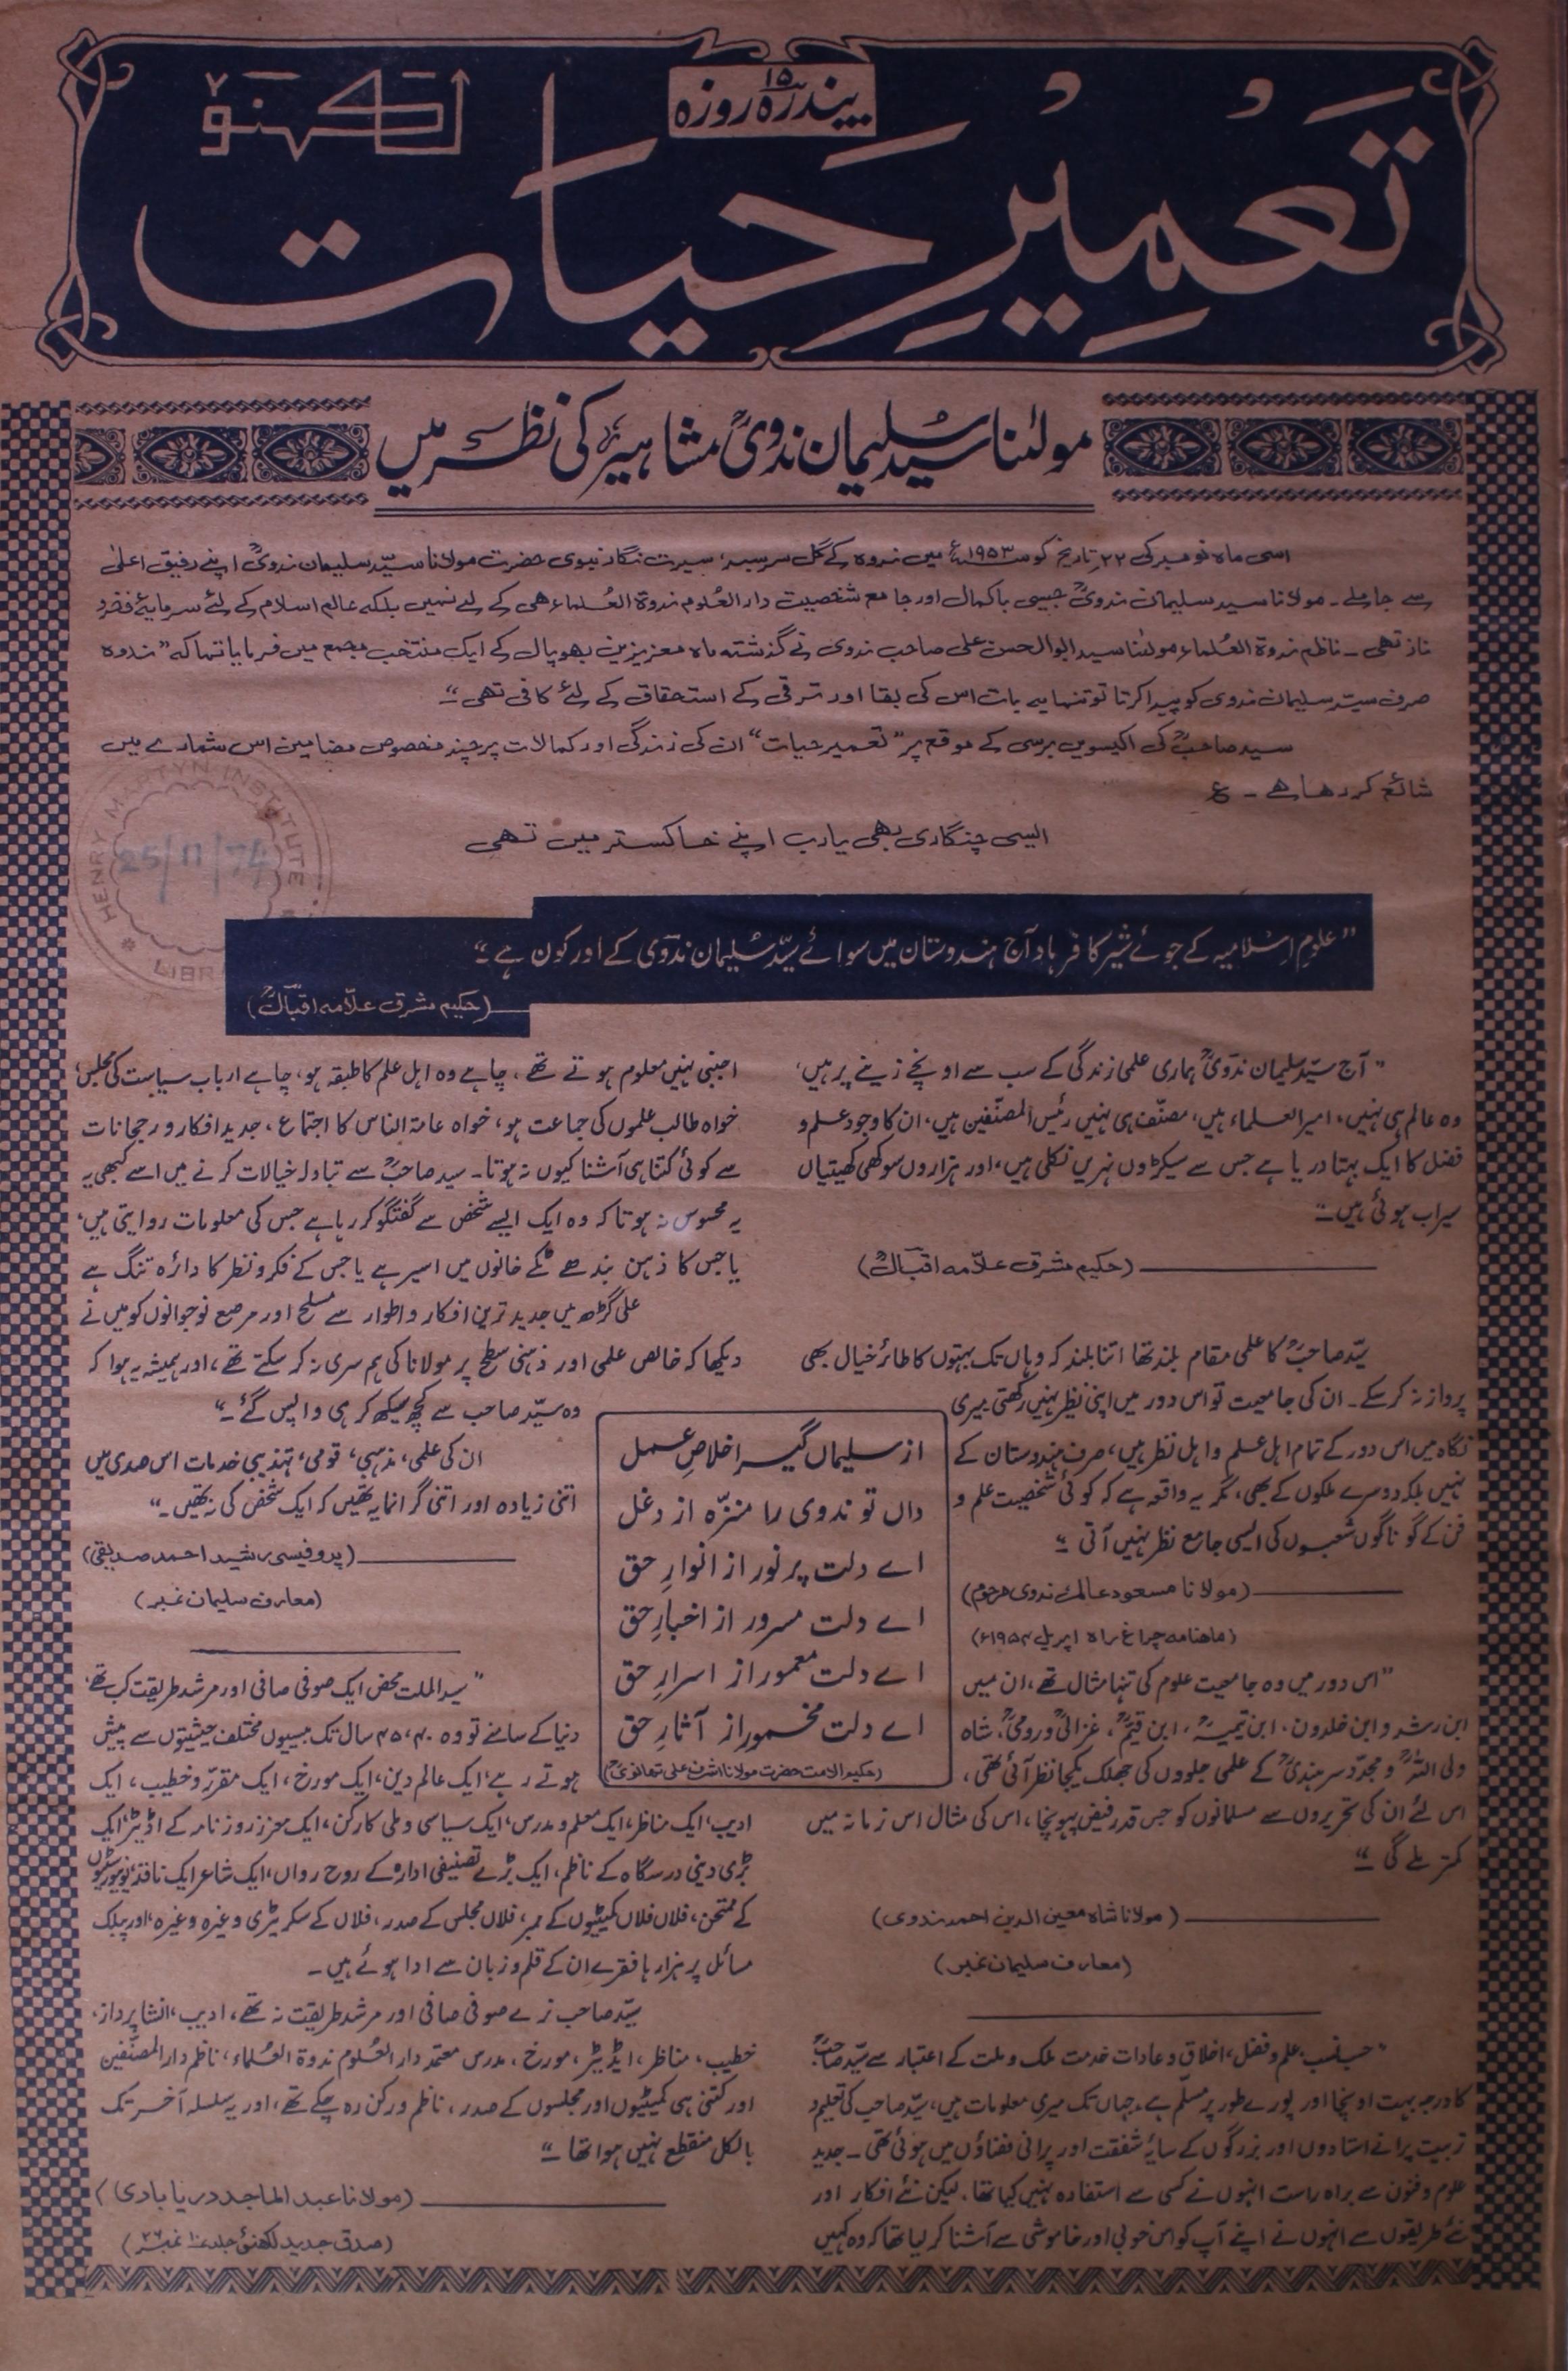 پندرہ ۱۵ روزہ
تعمیرِ حیات
لکھنؤ
مولٰنا سید سلیمان ندویؒ مشاہیر کی نظر میں
اسی ماہ نومبر کی ۲۲ تاریخ کو ۱۹۵۳ء میں ندوہ کے گل سرسبد، سیرت نگار نبوی حضرت مولانا سیّد سلیمان ندویؒ اپنے رفیق اعلیٰ
سے جا ملے۔ مولانا سید سلیمان ندویؒ جیسی باکمال اور جامع شخصیت دار العُلوم ندوۃ العُلماء ھی کے لئے نہیں بلکہ عالم اسلام کے لئے سرمایۂ فخر و
ناز تھی۔ ناظم ندوۃ العُلماء مولٰنا سید ابوالحسن علی صاحب ندوی نے گذشتہ ماہ معزیزین بھوپال کے ایک منتخب مجمع میں فرمایا تھا کہ "ندوہ
صرف سیّد سلیمان ندوی کو پیدا کرتا تو تنہا یہ بات اس کی بقا اور ترقی کے استحقاق کے لئے کافی تھی"
سید صاحبؒ کی اکیسویں برسی کے موقع پر "تعمیر حیات" ان کی زندگی اور کمالات پر چند مخصوص مضامین اس شمارے میں
شائع کر رھا ھے۔ ع
ایسی چنگاری بھی یارب اپنے خاکستر میں تھی
HENRY MARTYN INSTITUTE
25/11/74
LIBR
"علومِ اِسْلامیہ کے جوئے شیر کا فرہاد آج ہندوستان میں سوائے سیّد سُلیمان ندوی کے اور کون ہے"
(حکیم مشرق علاّمہ اقبالؒ)
"آج سیّد سلیمان ندویؒ ہماری علمی زندگی کے سب سے اونچے زینے پر ہیں،
وہ عالم ہی نہیں، امیر العلماء ہیں، مصنّف ہی نہیں رئیس المصنّفین ہیں، ان کا وجود علم و
فضل کا ایک بہتا دریا ہے جس سے سیکڑوں نہریں نکلی ہیں، اور ہزاروں سوکھی کھیتیاں
سیراب ہوئی ہیں"
(حکیم مشرق علاّمہ اقبالؒ)
سیّد صاحبؒ کا علمی مقام بلند تھا اتنا بلند کہ وہاں تک بہتوں کا طائر خیال بھی
پرواز نہ کر سکے۔ ان کی جامعیت تو اس دور میں اپنی نظیر نہیں رکھتی میری
نگاہ میں اس دور کے تمام اہل علم و اہل نظر ہیں، صرف ہندوستان کے
نہیں بلکہ دوسرے ملکوں کے بھی، مگر یہ واقعہ ہے کہ کوئی شخصیت علم و
فن کے گوناگوں شعبوں کی ایسی جامع نظر نہیں آتی"
(مولانا مسعود عالم ندوی مرحوم)
(ماھنامہ چراغ راہ اپریل ۱۹۵۴ء)
"اس دور میں وہ جامعیت علوم کی تنہا مثال تھے، ان میں
ابن رشد و ابن خلدون، ابن تیمیہؒ، ابن قیمؒ، غزالیؒ و رومیؒ، شاہ
ولی اللہؒ و مجدّد سرہندیؒ کے علمی جلووں کی جھلک یکجا نظر آتی تھی،
اس لئے ان کی تحریروں سے مسلمانوں کو جس قدر فیض پہونچا، اس کی مثال اس زمانہ میں
کمتر ملے گی"
(مولانا شاہ معین الدین احمد ندوی)
(معارف سلیمان نمبر)
"حسب نسب، علم و فضل، اخلاق و عادات خدمت ملک و ملت کے اعتبار سے سیّد صاحبؒ
کا درجہ بہت اونچا اور پورے طور پر مسلّم ہے۔ جہاں تک میری معلومات ہیں، سیّد صاحب کی تعلیم و
تربیت پرانے استادوں اور بزرگوں کے سایۂ شفقت اور پرانی فضاؤں میں ہوئی تھی۔ جدید
علوم و فنون سے براہ راست انہوں نے کسی سے استفادہ نہیں کیا تھا۔ لیکن نئے افکار اور
نئے طریقوں سے انہوں نے اپنے آپ کو اس خوبی اور خاموشی سے آشنا کر لیا تھا کہ وہ کہیں
از سلیماں گیر اخلاصِ عمل
داں تو ندوی را منزّہ از دغل
اے دلت پر نور از انوارِ حق
اے دلت مسرور از اخبارِ حق
اے دلت معمور از اسرارِ حق
اے دلت مخمور از آثارِ حق
(حکیم الامت حضرت مولانا اشرف علی تھانویؒ)
اجنبی نہیں معلوم ہوتے تھے، چاہے وہ اہل علم کا طبقہ ہو، چاہے ارباب سیاست کی مجلس،
خواہ طالب علموں کی جماعت ہو، خواہ عامۃ الناس کا اجتماع، جدید افکار و رجحانات
سے کوئی کتنا ہی آشنا کیوں نہ ہوتا۔ سید صاحبؒ سے تبادلہ خیالات کرنے میں اسے کبھی یہ
یہ محسوس نہ ہوتا کہ وہ ایک ایسے شخص سے گفتگو کر رہا ہے جس کی معلومات روایتی ہیں،
یا جس کا ذہن بندھے ٹکے خانوں میں اسیر ہے یا جس کے فکر و نظر کا دائرہ تنگ ہے
علی گڑھ میں جدید ترین افکار و اطوار سے مسلح اور مرصع نوجوانوں کو میں نے
دیکھا کہ خالص علمی اور ذہنی سطح پر مولانا کی ہمسری نہ کر سکتے تھے، اور ہمیشہ یہ ہوا کہ
وہ سیّد صاحب سے کچھ سیکھ کر ہی واپس گئے۔"
ان کی علمی، مذہبی، قومی، تہذیبی خدمات اس صدی میں
اتنی زیادہ اور اتنی گرانمایہ تھیں کہ ایک شخص کی نہ تھیں۔"
(پروفیسر رشید احمد صدیقی)
(معارف سلیمان نمبر)
"سید الملت محض ایک صوفی صافی اور مرشد طریقت کب تھے،
دنیا کے سامنے تو وہ ۴۰، ۴۵ سال تک بیسیوں مختلف حیثیتوں سے پیش
ہوتے رہے، ایک عالم دین، ایک مورخ، ایک مقرّر و خطیب، ایک
ادیب، ایک مناظر، ایک معلم و مدرس، ایک سیاسی و ملی کارکن، ایک معزز روزنامہ کے اڈیٹر، ایک
بڑی دینی درسگاہ کے ناظم، ایک بڑے تصنیفی ادارہ کے روح رواں، ایک شاعر ایک ناقد، یونیورسٹیوں
کے ممتحن، فلاں فلاں کمیٹیوں کے ممبر، فلاں مجلس کے صدر، فلاں کے سکریٹری وغیرہ وغیرہ، اور پبلک
مسائل پر ہزارہا فقرے ان کے قلم و زبان سے ادا ہوئے ہیں۔
سیّد صاحب نرے صوفی صافی اور مرشد طریقت نہ تھے، ادیب، انشا پرداز،
خطیب، مناظر، ایڈیٹر، مورخ، مدرس معتمد دار العُلوم ندوۃ العُلماء، ناظم دار المصنّفین
اور کتنی ہی کمیٹیوں اور مجلسوں کے صدر، ناظم و رکن رہ چکے تھے، اور یہ سلسلہ آخر تک
بالکل منقطع نہیں ہوا تھا"
(مولانا عبد الماجد دریابادی)
(صدق جدید لکھنؤ جلد ۱۰ نمبر ۲۶)